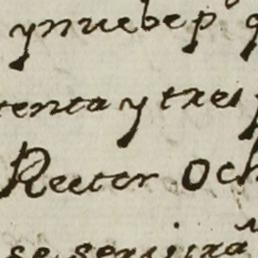 ynuebe p
tenta y tres
Rector Och
se seruira